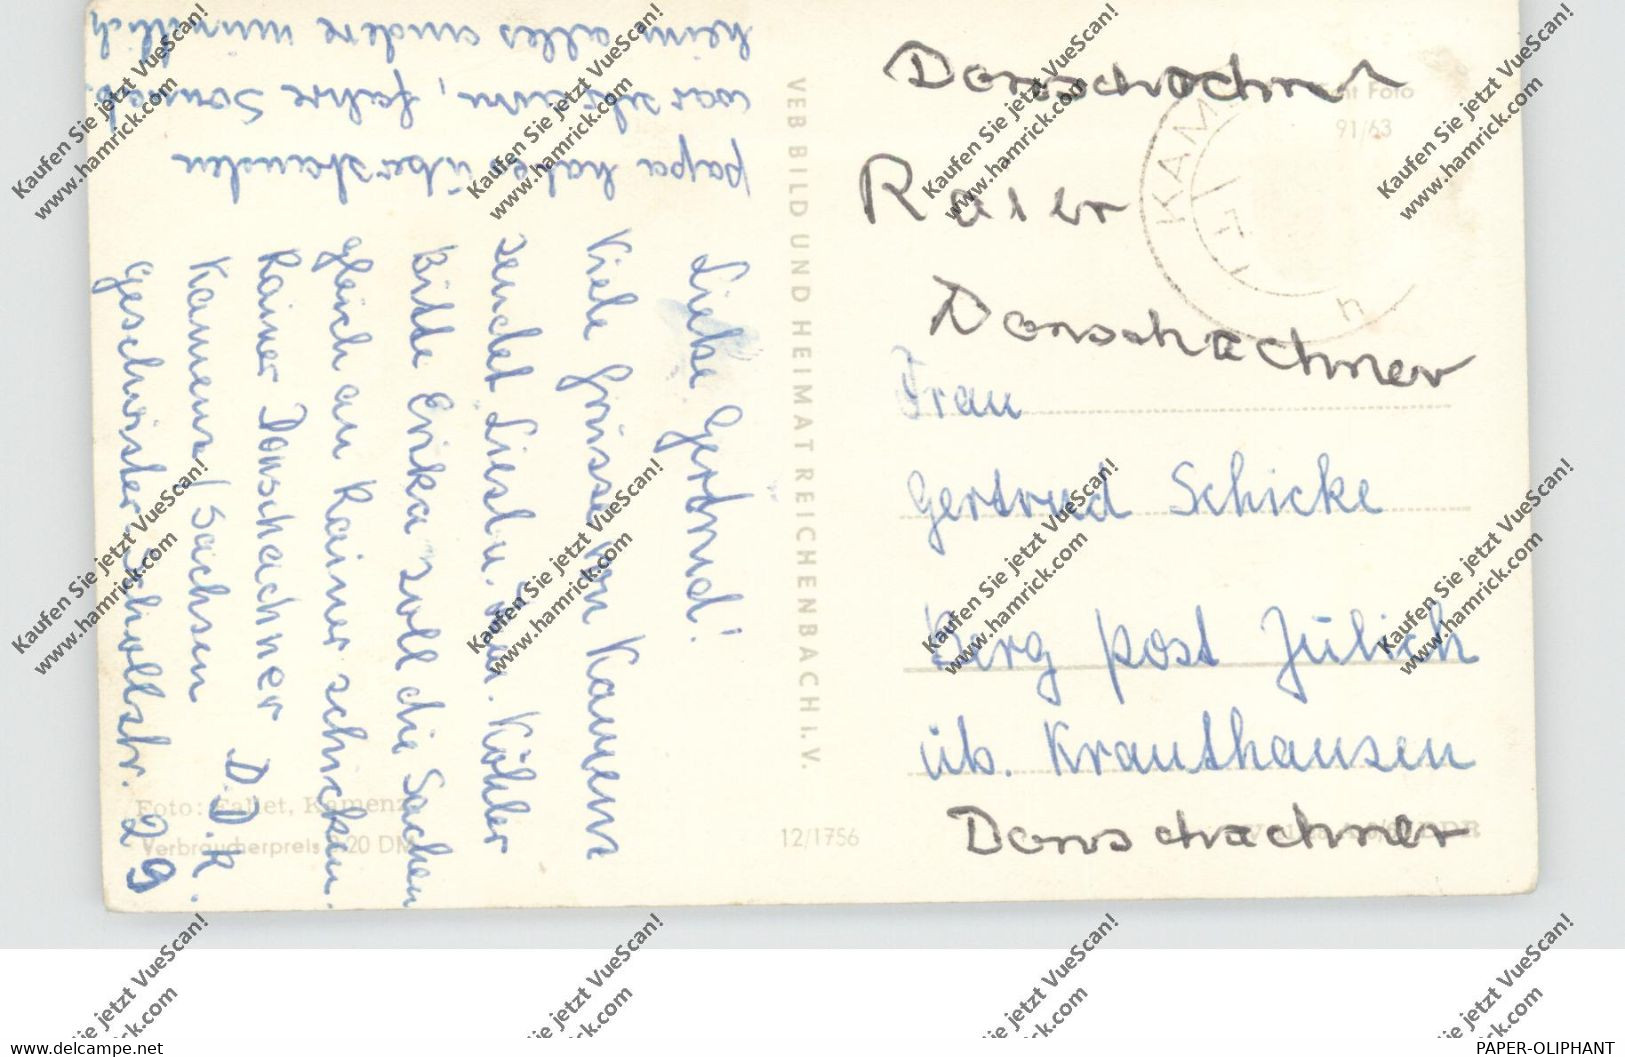 Liebe Gertrud!
Viele Grüsse von Kamenz
sendet Liesbl. Fam. Köhler
Bitte Erika soll die Sachen
gleich an Rainer schicken.
Rainer Donschachner D.D.R.
Kamenz/Sachsen
Geschwister-Schollstr. 29
papa hat es überstanden
war schlimm, fahre Sonnab.
heim alles andere mündlich
VEB BILD UND HEIMAT REICHENBACH i. V.
Foto: Kallet, Kamenz
Verbraucherpreis 0,20 DM
12/1756
Foto
91/63
KAM
Donschachner
Donschachner
Frau
Gertrud Schicke
Berg post Jülich
üb. Krauthausen
Donschachner
Kaufen Sie jetzt VueScan!
www.hamrick.com
www.delcampe.net
PAPER-OLIPHANT